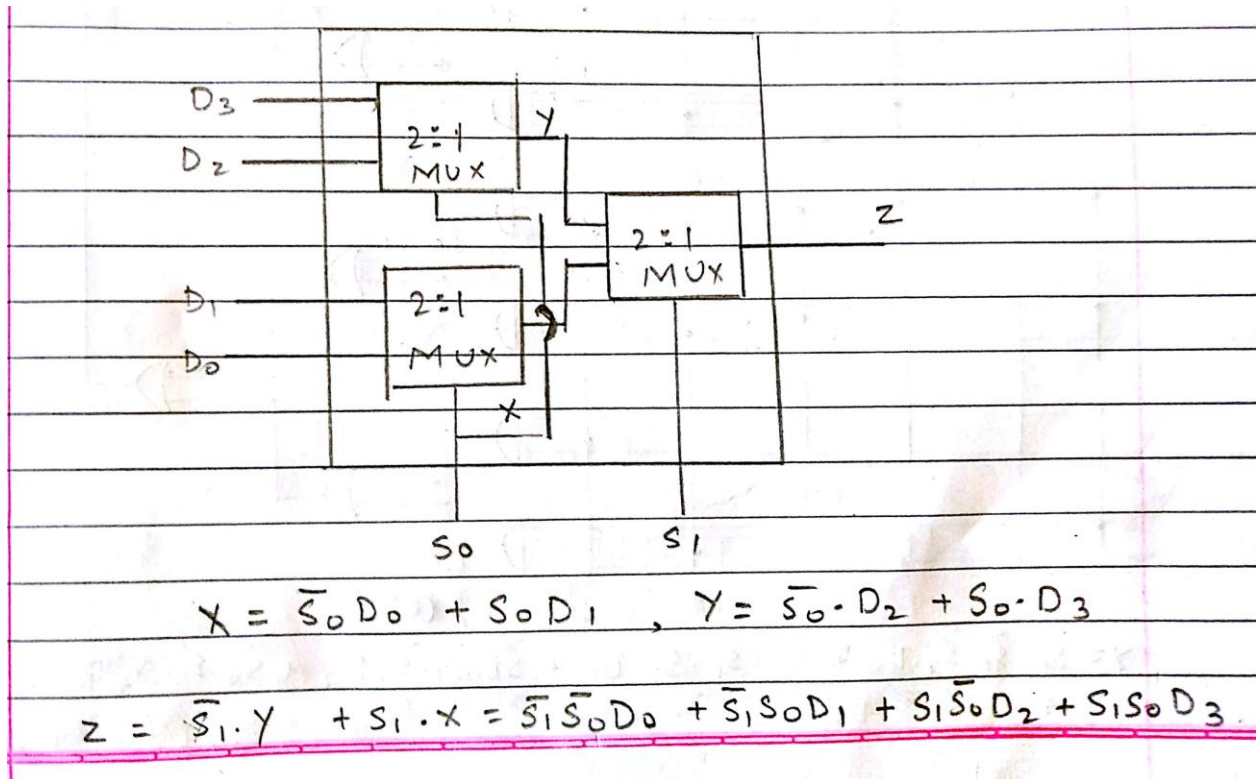 D3
2:1 MUX
Y
D2
2:1 MUX
Z
D1
2:1 MUX
D0
X
S0 S1
X = S̅0 D0 + S0 D1 , Y = S̅0 · D2 + S0 · D3
Z = S̅1 · Y + S1 · X = S̅1 S̅0 D0 + S̅1 S0 D1 + S1 S̅0 D2 + S1 S0 D3